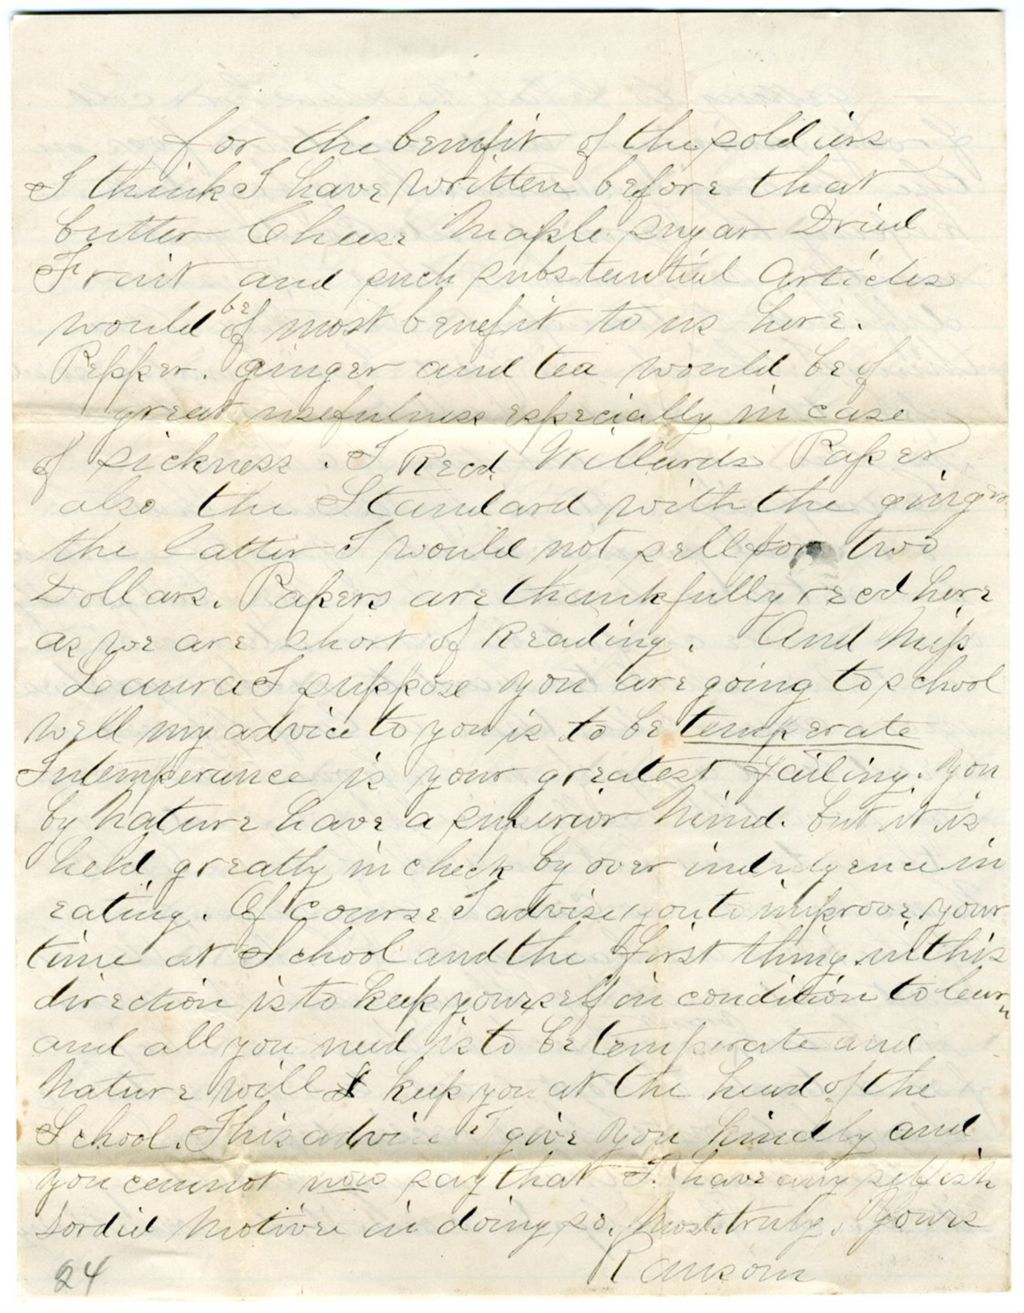 for the benefit of the soldiers
I think I have written before that
butter Cheese Maple sugar Dried
Fruit and such substantial articles
would be of most benefit to us here.
Pepper. ginger and tea would be of
great usefulness especially in case
of sickness. I Recd Willards Paper
also the Standard with the ginger
the latter I would not sell for two
Dollars. Papers are thankfully recd here
as we are short of Reading. And Miss
Leaura I suppose you are going to school
well my advice to you is to be temperate
Intemperance is your greatest failing. you
by Nature have a superior Mind. but it is
held greatly in check by over indulgence in
eating. Of course I advise you to improve your
time at School and the first thing in this
direction is to keep yourself in condition to learn
and all you need is to be temperate and
Nature will keep you at the head of the
School. This advice I give you kindly and
you cannot now say that I have any selfish
Sordid motive in doing so. Most truly. Yours
Ransom
24